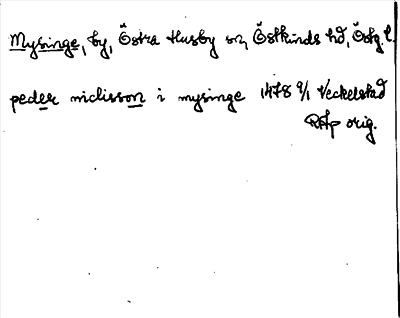 Mysinge, by, Östra Husby sn, Östkinds hd, Östg l.
peder niclisson i mysinge 1478 9/1 Veckelstad
RAp orig.